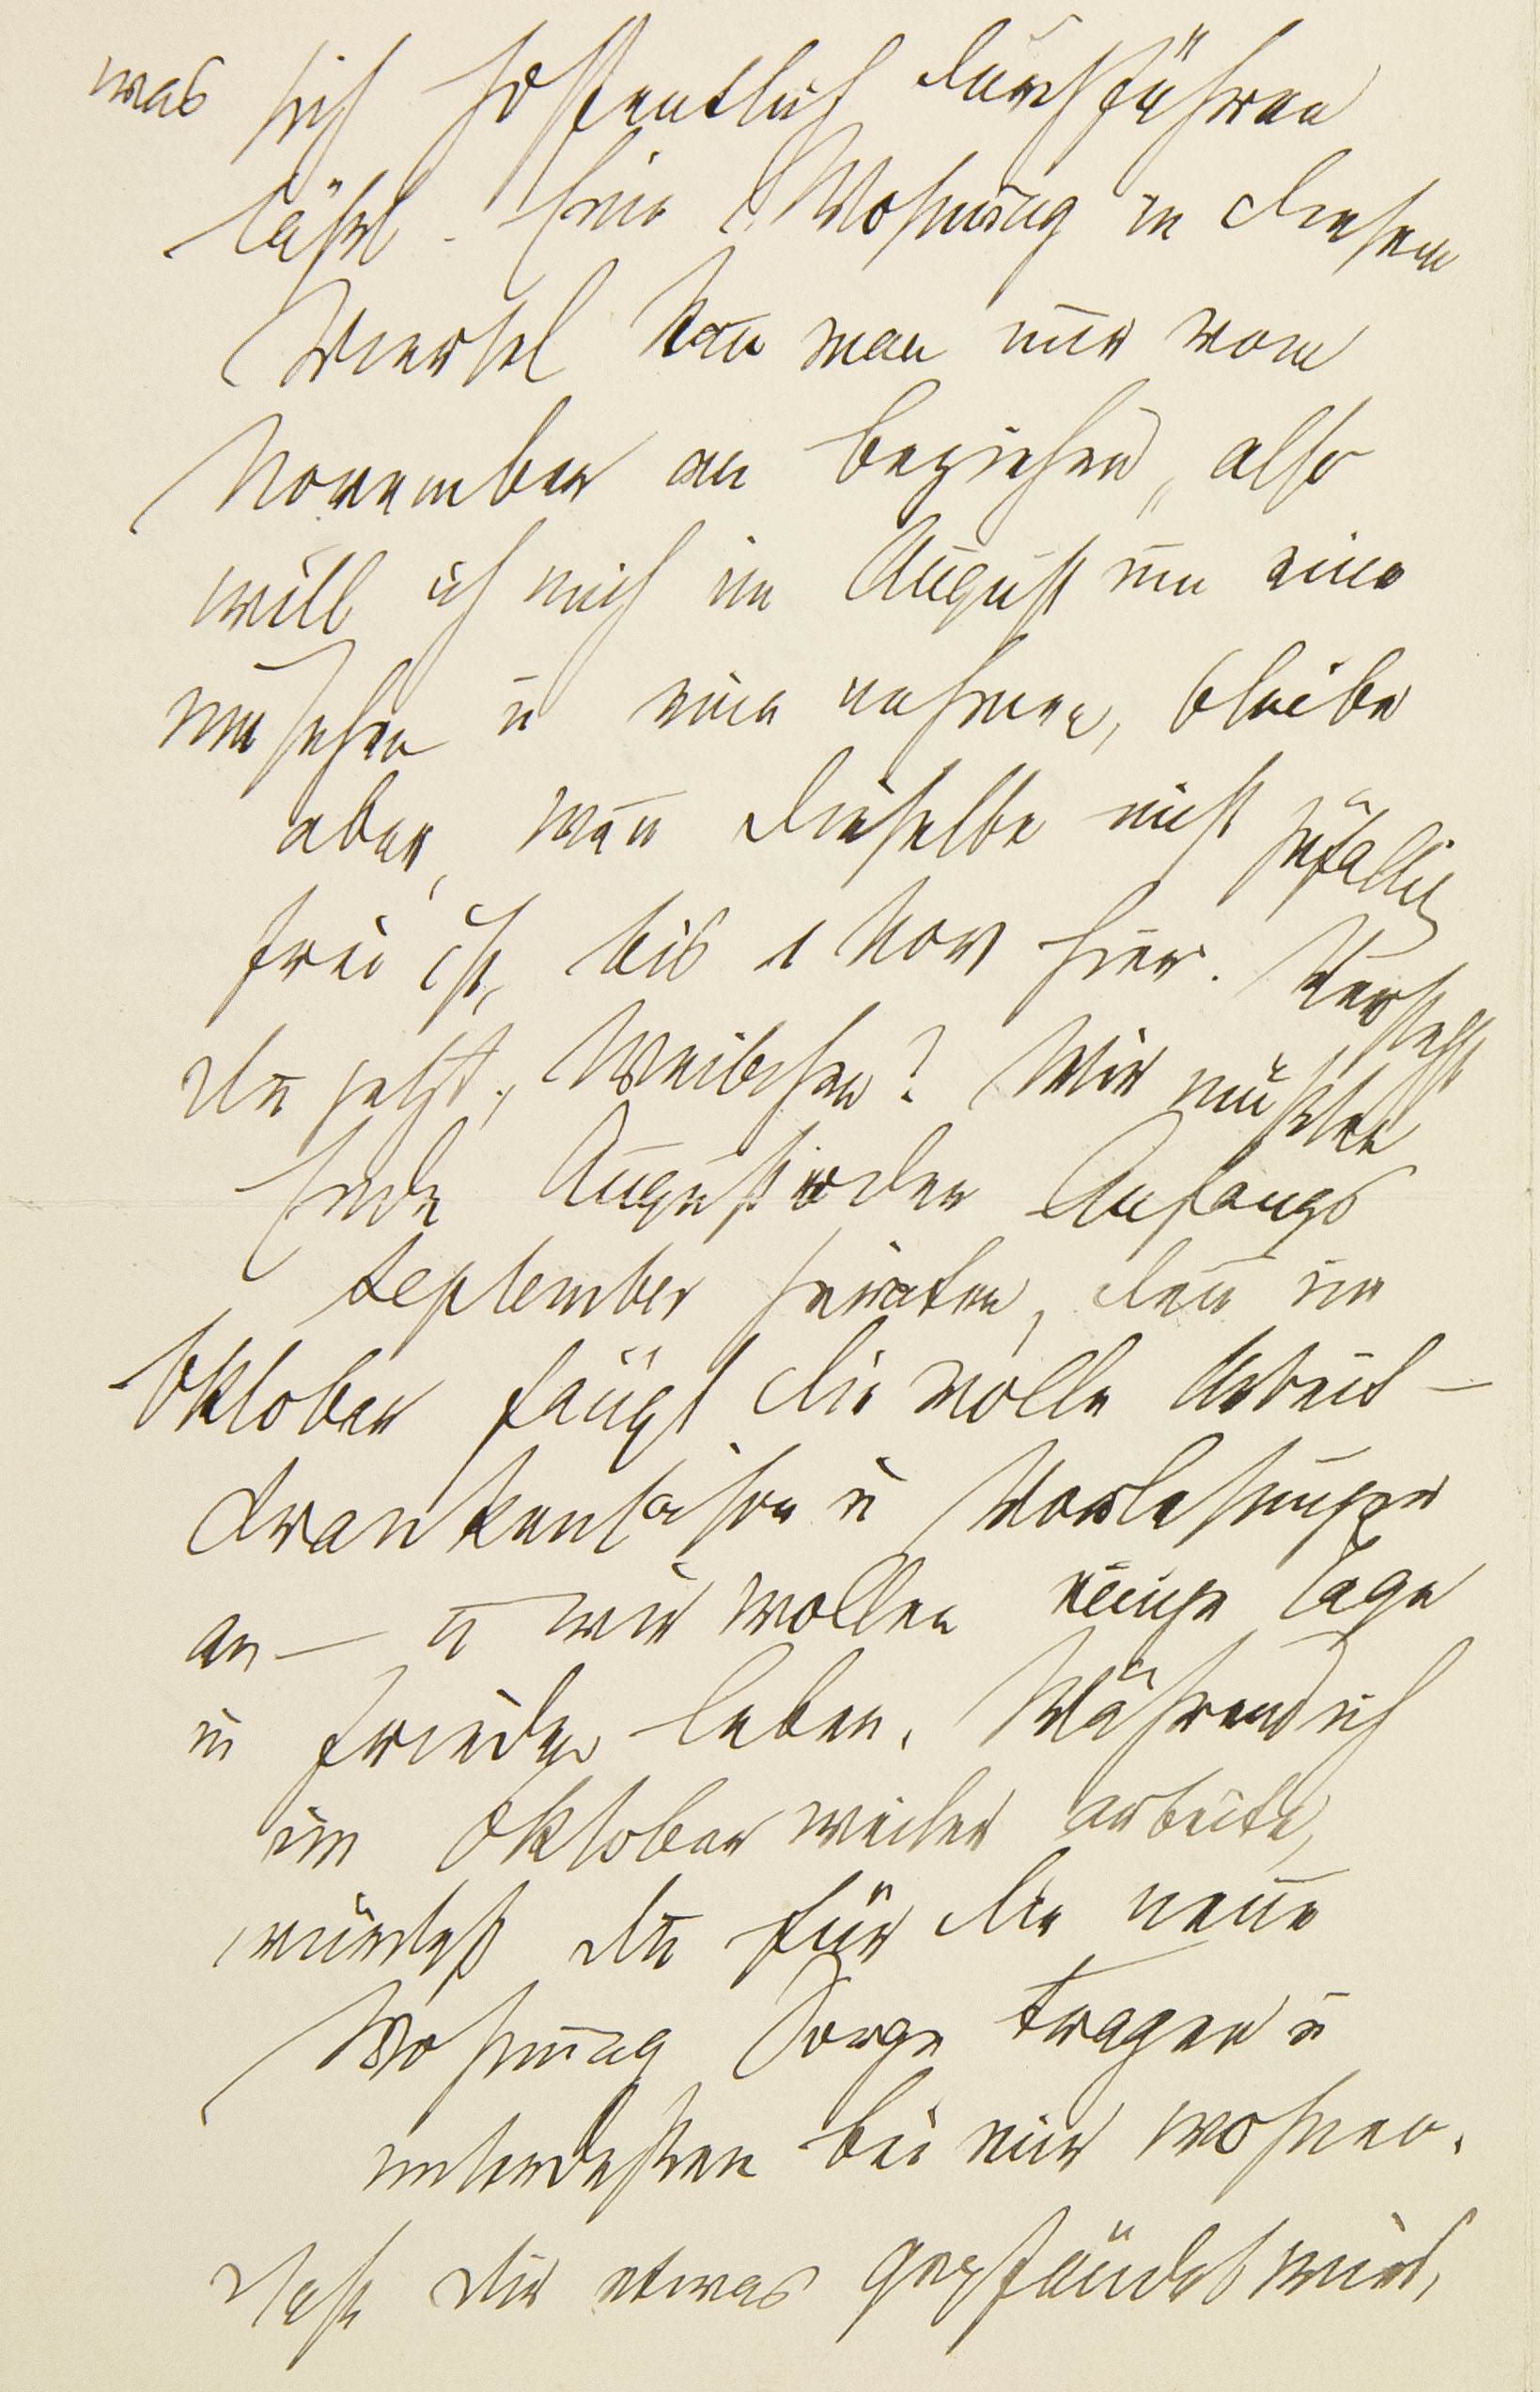 was sich hoffentlich durchführen
läßt. Eine Wohnung in diesem
Viertel kan̅ man nur vom
November an beziehen, also
will ich mich im August um eine
umsehen u eine nehmen, bleibe
aber, wen̅ dieselbe nicht zufällig
frei ist, bis 1 Nov hier. Verstehst
du jetzt, Weibchen? Wir müßten
Ende August oder Anfangs
September heiraten, den̅ im
Oktober fängt die volle Arbeit –
Krankensaison u Vorlesungen
an – u wir wollen einige Tage
in Frieden leben. Während ich
im Oktober weiter arbeite,
würdest du für die neue
Wohnung Sorge tragen u
unterdessen bei mir wohnen.
Daß dir etwas gepfändet wird,